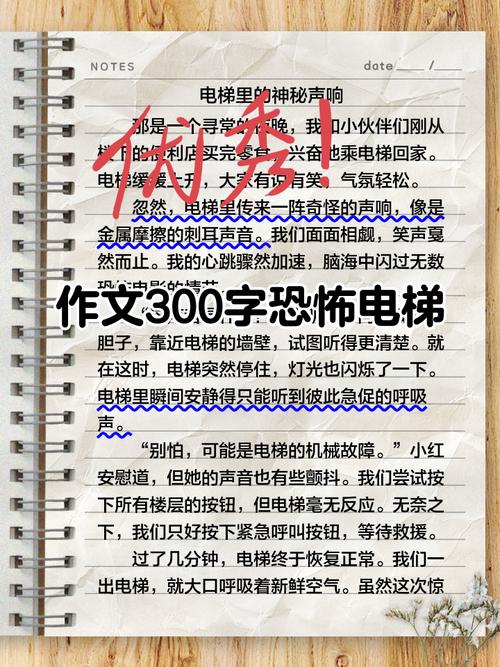 NOTES
date / 
电梯里的神秘声响
那是一个寻常的夜晚，我和小伙伴们刚从
楼下的便利店买完零食，兴奋地乘电梯回家。
电梯缓缓上升，大家有说有笑，气氛轻松。
优秀！
忽然，电梯里传来一阵奇怪的声响，像是
金属摩擦的刺耳声音。我们面面相觑，笑声戛
然而止。我的心跳骤然加速，脑海中闪过无数
恐怖电影的情节。
作文300字恐怖电梯
胆子，靠近电梯的墙壁，试图听得更清楚。就
在这时，电梯突然停住，灯光也闪烁了一下。
电梯里瞬间安静得只能听到彼此急促的呼吸
声。
“别怕，可能是电梯的机械故障。”小红
安慰道，但她的声音也有些颤抖。我们尝试按
下所有楼层的按钮，但电梯毫无反应。无奈之
下，我们只好按下紧急呼叫按钮，等待救援。
过了几分钟，电梯终于恢复正常。我们一
出电梯，就大口呼吸着新鲜空气。虽然这次惊